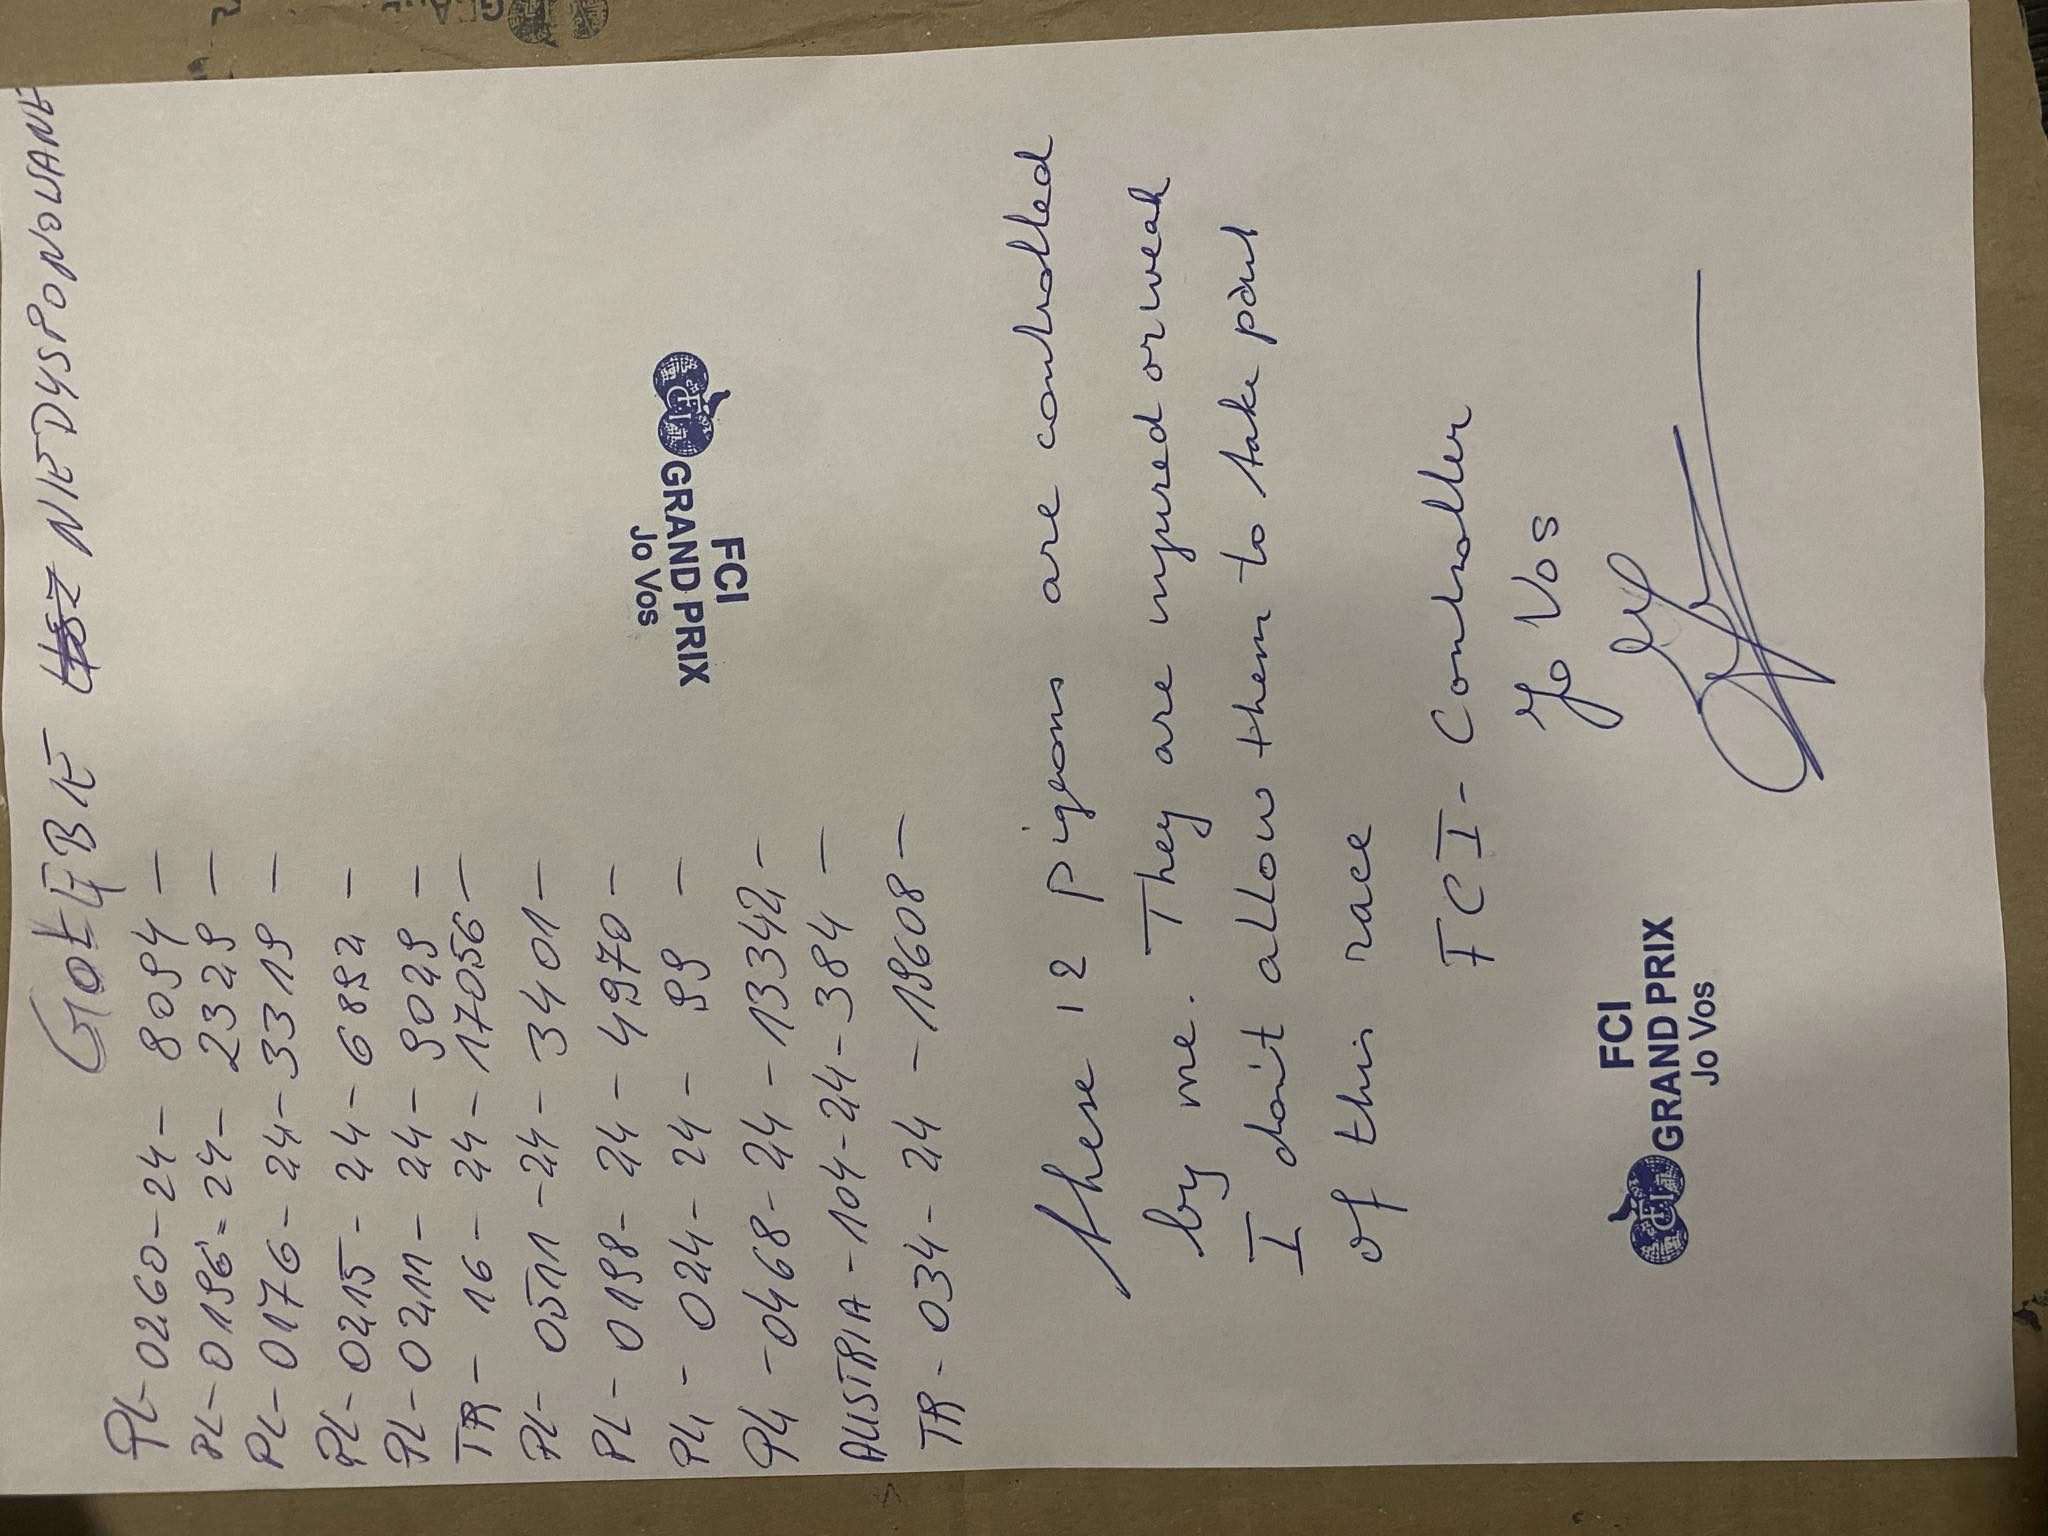 GOŁĘBIE NIEDYSPONOWANE
PL-0260-24-8094-
PL-0196-24-2329-
PL-0176-24-3319-
PL-0215-24-6892-
PL-0211-24-9029-
TR-16-24-17056-
PL-0511-24-3401-
PL-0198-24-4970-
PL-024-24-99-
PL-0468-24-13342-
AUSTRIA-104-24-384-
TR-034-24-19608-
FCI
GRAND PRIX
Jo Vos
these 12 pigeons are controlled
by me. They are injured or weak
I don't allow them to take part
of this race
FCI-Controller
Jo Vos
FCI
GRAND PRIX
Jo Vos